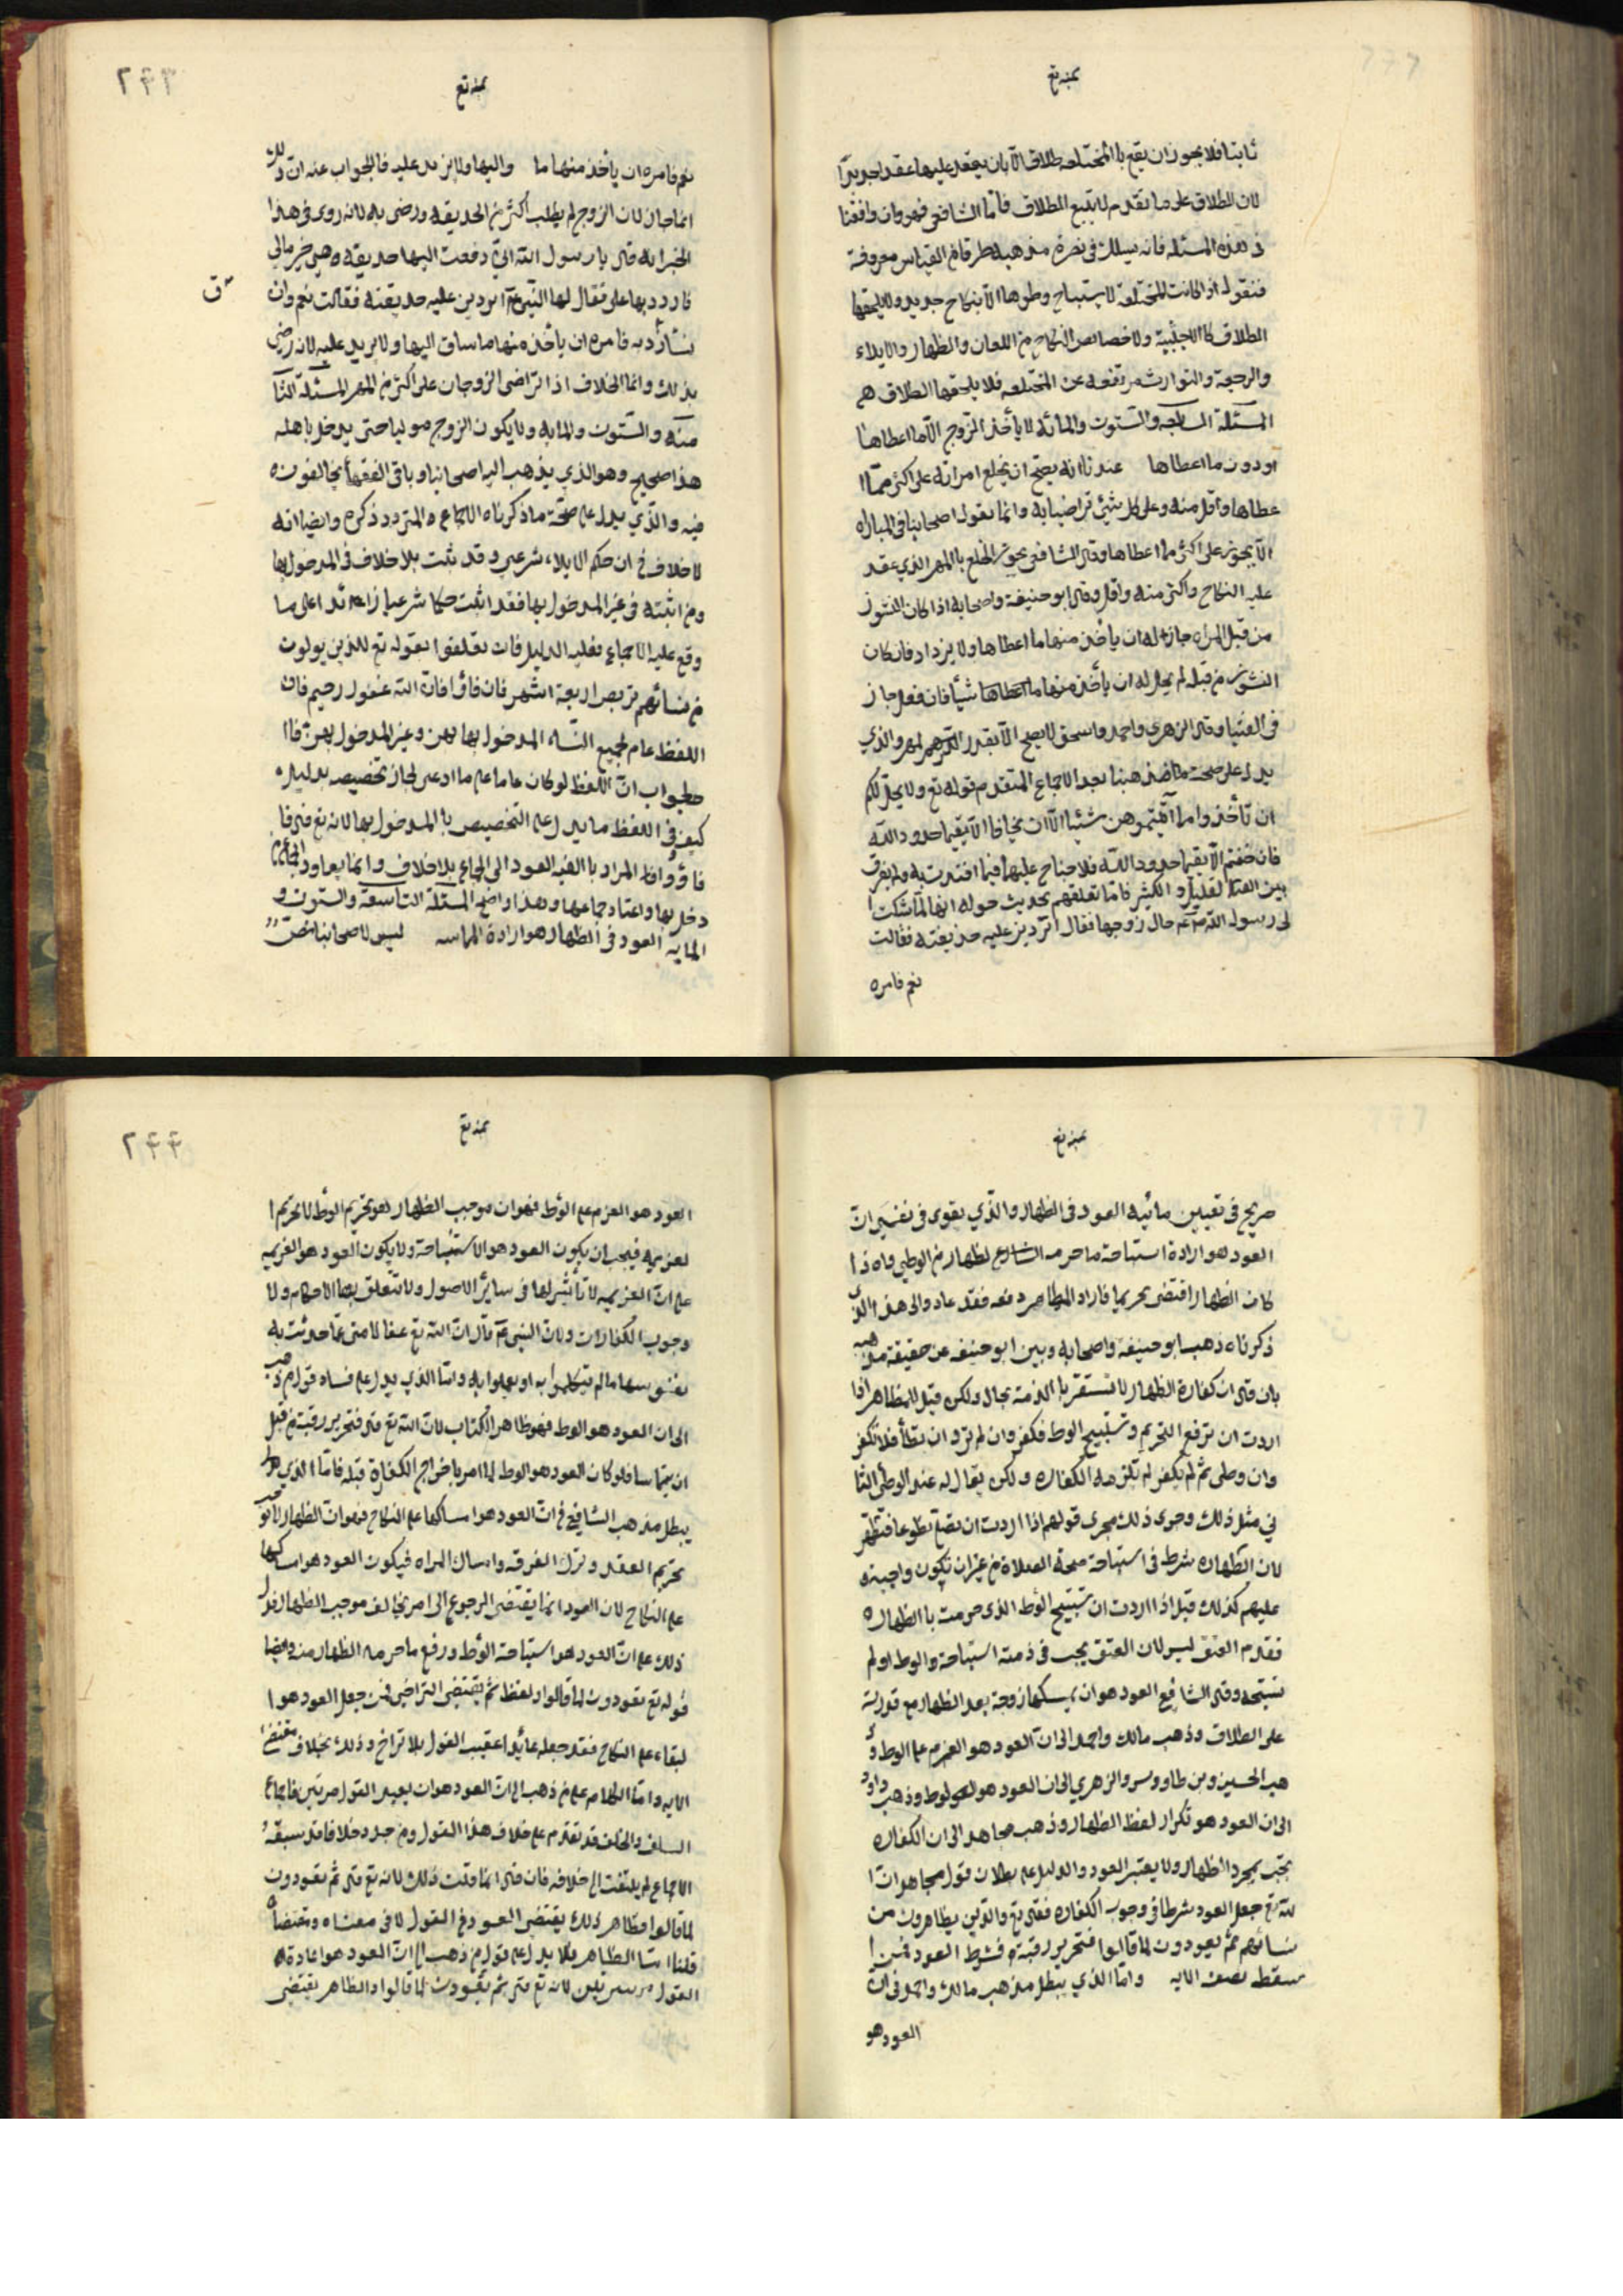 ثابتا فلا يجوز ان يقع با المختلعه طلاق الا بان يعقد عليها عقدا جديدا
لان الطلاق على ما تقدم لا يتبع الطلاق فاما الشافعي فهو وان وافقنا
في هذه المسئلة فانه يسلك في نصرة مذهبه طرقا من القياس معروفة
فنقول اذا كانت المختلعة لا يستباح وطوها الا بنكاح جديد ولا يلحقها
الطلاق كالاجنبية ولا خصايص النكاح من اللعان والظهار والايلاء
والرجعة والتوارث مرتفعه عن المختلعه فلا يلحقها الطلاق هم
المسئلة السابعه والستون والمائه لا يأخذ الزوج الا ما اعطاها
او دون ما اعطاها عندنا انه يصح ان يخلع امراته على اكثر مما ا
عطاها واقل منه وعلى كل شيئ تراضيا به وانما يقول اصحابنا في المباراه
الا يجوز على اكثر مما اعطاها وقال الشافعي يجوز الخلع با المهر الذي عقد
عليه النكاح واكثر منه واقل وقال ابو حنيفة واصحابه اذا كان النشوز
من قبل المراه جاز له ان يأخذ منها ما اعطاها ولا يزداد فان كان
النشوز من قبله لم يحل له ان يأخذ منها ما اعطاها شيأ فان فعل جاز
في الفتيا وقال الزهري واحمد واسحق لا يصح الا بقدر المهر والذي
يدل على صحة مذهبنا بعد الاجماع المتقدم قوله تع ولا يحل لكم
ان تأخذوا مما آتيتموهن شئيا الا ان يخافا الا يقيما حدود الله
فان خفتم الا يقيما حدود الله فلا جناح عليهما فيما افتدت به ولم يفرق
بين القليل و الكثير فاما تعلقهم بحديث حوله انها لما شكت ا
لى رسول الله حال زوجها فقال اتردين عليه حديقته فقالت
نعم فامره
بمنه تع
٢٤٣
بمنه تع
نعم فامره ان يأخذ منها ما واليها ولا يزيد عليه فالجواب عنه ان ذلك
انما جاز لان الزوج لم يطلب اكثر من الحديقه ورضى به لانه روى في هذا
الخبر انه قال يا رسول الله اني دفعت اليها حديقه وهي خير مالي
فارددها على فقال لها النبي اتردين عليه حديقته فقالت نعم وان
شأزد به فامره ان يأخذ منها ما ساق اليها ولا يزيد عليه لانه رضي
بذلك وانما الخلاف اذا تراضى الزوجان على اكثر من المهر المسئلة الثا
منه والستون والمايه ولا يكون الزوج موليا حتى يدخل باهله
هذا صحيح وهو الذي يذهب اليه اصحابنا وباقي الفقهأ يخالفون ه
فيه والذي يدل على صحة ما ذكرناه الاجماع المتردد ذكره وايضا انه
لا خلاف في ان حكم الايلاء شرعي وقد ثبت بلا خلاف في المدخول بها
ومن اثبته في غير المدخول بها فقد اثبت حكما شرعيا زايدا على ما
وقع عليه الاجماع فعليه الدليل فان تعلقوا بقوله تع للذين يولون
من نسائهم تربص اربعة اشهر فان فاؤا فان الله غفور رحيم فان
اللفظ عام لجميع النساء المدخول بها بهن وغير المدخول بهن فا ا
لجواب ان اللفظ لو كان عاما على ما ادعى لجاز تخصيصه بدليل ه
كيف وفي اللفظ ما يدل على التخصيص با المدخول بها لانه تع قال فا
فاؤوا والمراد با الفيه العود الى الجماع بلا خلاف وانما يعاود الجماع من
دخل بها واعتاد جماعها وهذا واضح المسئلة التاسعة والستون و
المايه العود في الظهار هو ارادة المماسه ليس لاصحابنا نص
بمنه تع
صريح في تعيين ما ئيه العود في الظهار والذي يقوى في نفسي ان
العود هو ارادة استباحة ما حرمه الظهار من الوطي واه ذا
كان الظهار اقتضى تحريما فاراد المظاهر دفعه فقد عاد والى هذا الذي
ذكرناه ذهب ابو حنيفة واصحابه وبين ابو حنيفه عن حقيقة مذهبه
بان قال ان كفارة الظهار لا تستقر با الذمة بحال ولكن قيل للمظاهر اذا
اردت ان ترفع التحريم وتستبيح الوط فكفر وان لم ترد ان تطأ فلا تكفر
وان وطى ثم لم يكفر لم تلزمه الكفاره ولكن يقال له عند الوطئ الثا
ني مثل ذلك وجرى ذلك مجرى قولهم اذا اردت ان تصلي تطوعا فتطهر
لان الطهاره شرط في استباحة صحة الصلاة من غير ان تكون واجبة
عليهم كذلك قيل اذا اردت ان تستبيح الوط الذي حرمت با الظهار ه
فقدم العتق ليس لان العتق يجب في ذمته استباحة والوط او لم
تستبحه وقال الشافعي العود هو ان يمسكها زوجة بعد الظهار مع قدرته
على الطلاق وذهب مالك واحمد الى ان العود هو العزم على الوط وذ
هب الحسين وبن طاووس والزهري الى ان العود هو الوط وذهب داود
الى ان العود هو تكرار لفظ الظهار وذهب مجاهد الى ان الكفاره
تجب بمجرد الظهار ولا يعتبر العود والدليل على بطلان قول مجاهد ان ا
لله تع جعل العود شرطا في وجوب الكفاره فقال تع والذين يظاهرون من
نسائهم ثم يعودون لما قالوا فتحرير رقبة فشرط العود فمن ا
سقط نصف الايه واما الذي يبطل مذهب مالك واحمد في ان
العود هو
٢٤٤
بمنه تع
العود هو العزم على الوط فهو ان موجب الظهار هو تحريم الوط لا تحريم ا
لعزيمه فيجب ان يكون العود هو الاستباحة ولا يكون العود هو العزيمه
على ان العزيمه لا تأثير لها في سائر الاصول ولا تتعلق بها الاحكام ولا
وجوب الكفارات ولان النبي قال ان الله تع عفا لامتى عما حدثت به
نفوسها ما لم يتكلموا به او يعملوا به واما الذي يدل على فساد قول من ذهب
الى ان العود هو الوط فهو ظاهر الكتاب لان الله تع قال فتحرير رقبة من قبل
ان يتماسا فلو كان العود هو الوط لما امر باخراج الكفارة قبله فاما الذي
يبطل مذهب الشافعي في ان العود هو امساكها على النكاح فهو ان الظهار لا يوجب
تحريم العقد وترك الفرقه وامساك المراه فيكون العود هو امساكها
على النكاح لان العود انما يقتضي الرجوع الى امر يخالف موجب الظهار فدل
ذلك على ان العود هو استباحة الوط ورفع ما حرمه الظهار منه وايضا
قوله تع يعودون لما قالوا ولفظ ثم يقتضي التراخي فمن جعل العود هو ا
لبقاء على النكاح فقد جعله عائدا عقيب القول بلا تراخ وذلك بخلاف مقتضى
الايه واما الكلام على من ذهب الى ان العود هو ان يعيد القول مرتين فاجماع
السلف والخلف قد تقدم على خلاف هذا القول ومن جدد خلافا قد سبقه
الاجماع لم يلتفت الى خلافه فان قال انما قلت ذلك لانه تع قال ثم يعودون
لما قالوا فظاهر ذلك يقتضي العود في القول لا في معناه ومقتضاه
قلنا اما الظاهر فلا يدل على قول من ذهب الى ان العود هو اعادة
القول مرتين لانه تع قال ثم يعودون لما قالوا والظاهر يقتضي